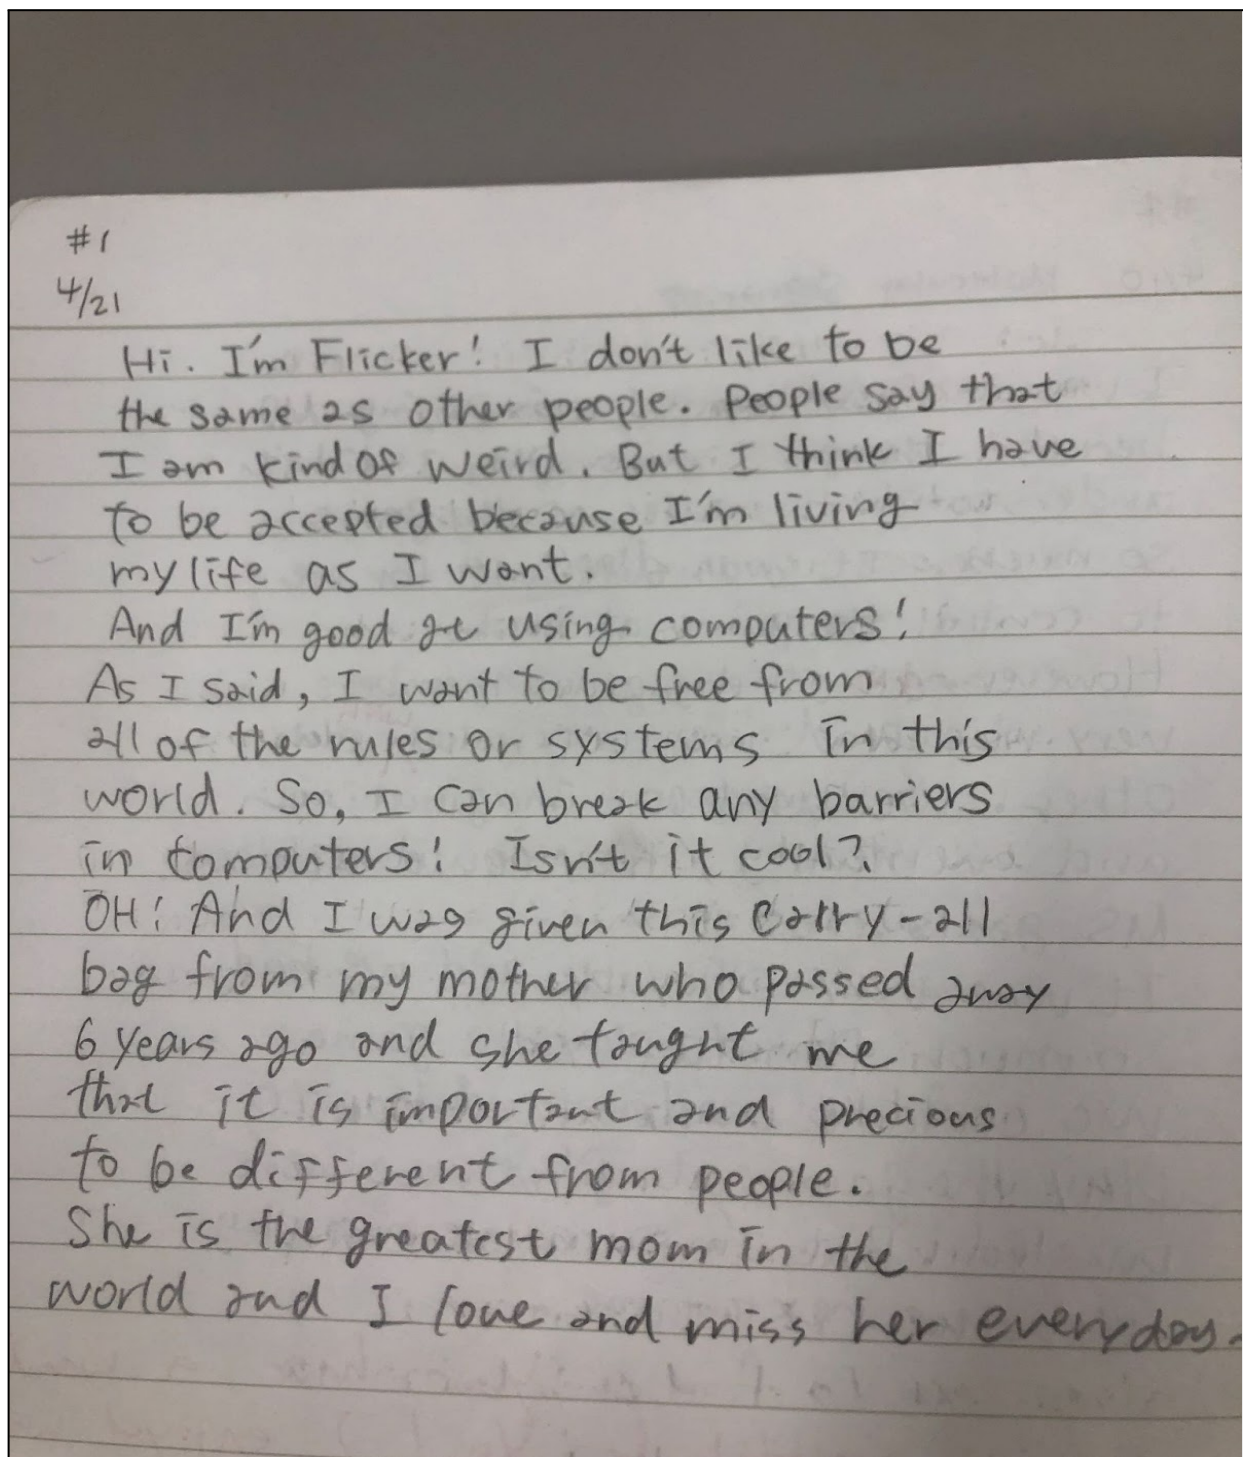 #1
4/21
Hi. I'm Flicker! I don't like to be
the same as other people. People say that
I am kind of weird. But I think I have
to be accepted because I'm living
my life as I want.
And I'm good at using computers!
As I said, I want to be free from
all of the rules or systems in this
world. So, I can break any barriers
in computers! Isn't it cool?
OH! And I was given this carry-all
bag from my mother who passed away
6 years ago and she taught me
that it is important and precious
to be different from people.
She is the greatest mom in the
world and I love and miss her everyday.